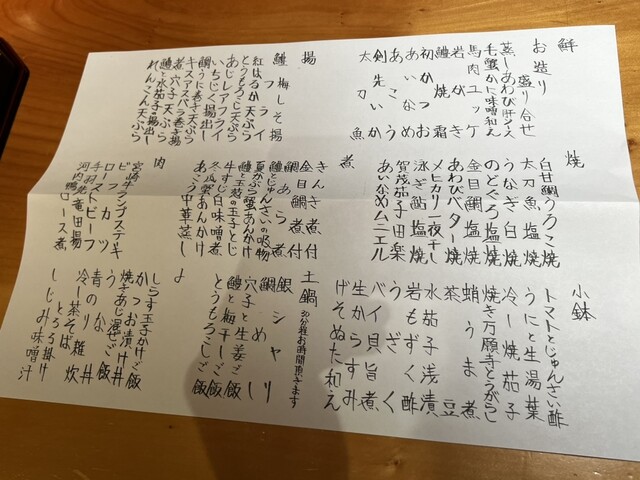 鮮
お造り盛り合せ
蒸しあわび肝ソース
毛蟹かに味噌和え
馬肉ユッケ
岩がき
鱧焼霜
初かつお
あいなめ
あこう
剣先いか
太刀魚
焼
白甘鯛うろこ焼
太刀魚塩焼
うなぎ白焼
のどぐろ塩焼
金目鯛塩焼
あわびバター焼
メヒカリ一夜干し
泳ぎ鮎塩焼
賀茂茄子田楽
あいなめムニエル
小鉢
トマトとじゅんさい酢
うにと生湯葉
冷し焼茄子
焼き万願寺とうがらし
蛸うま煮
茶豆
水茄子浅漬
岩もずく酢
うざく
バイ貝旨煮
生からすみ
げそぬた和え
揚
鱧梅しそ揚
鱧フライ
紅はるか天ぷら
とうもろこし天ぷら
あじレアフライ
いちじく揚出し
鯛うに巻き天ぷら
キスアスパラ巻き揚
煮穴子天ぷら
鱧と水茄子揚出し
れんこん天ぷら
煮
きんき煮付
金目鯛煮付
鯛あら煮
鱧とじゅんさいの吸物
夏かぶら蟹あんかけ
鱧と玉葱の玉子とじ
牛すじ白味噌煮
冬瓜蟹あんかけ
あこう中華蒸し
土鍋
30分程お時間頂きます
銀シャリ
鯛めし
穴子と生姜ご飯
鱧と梅干しご飯
とうもろこしご飯
肉
宮崎牛ランプステーキ
ビーフカツ
ロースカツ
ローストビーフ
手羽先竜田揚
河内鴨ロース煮
〆
しらす玉子かけご飯
かつお漬け丼
焼きあじ混ぜご飯
うな丼
青のり雑炊
冷し茶そば
とろろ掛け
しじみ味噌汁